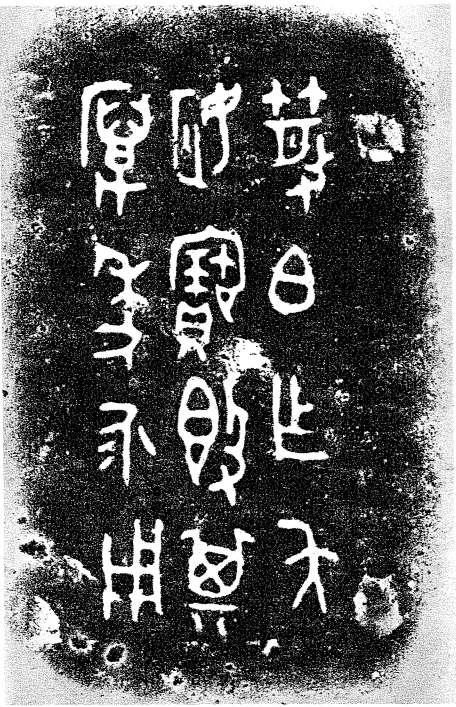 白乍
寶𣪘其
萬年永用